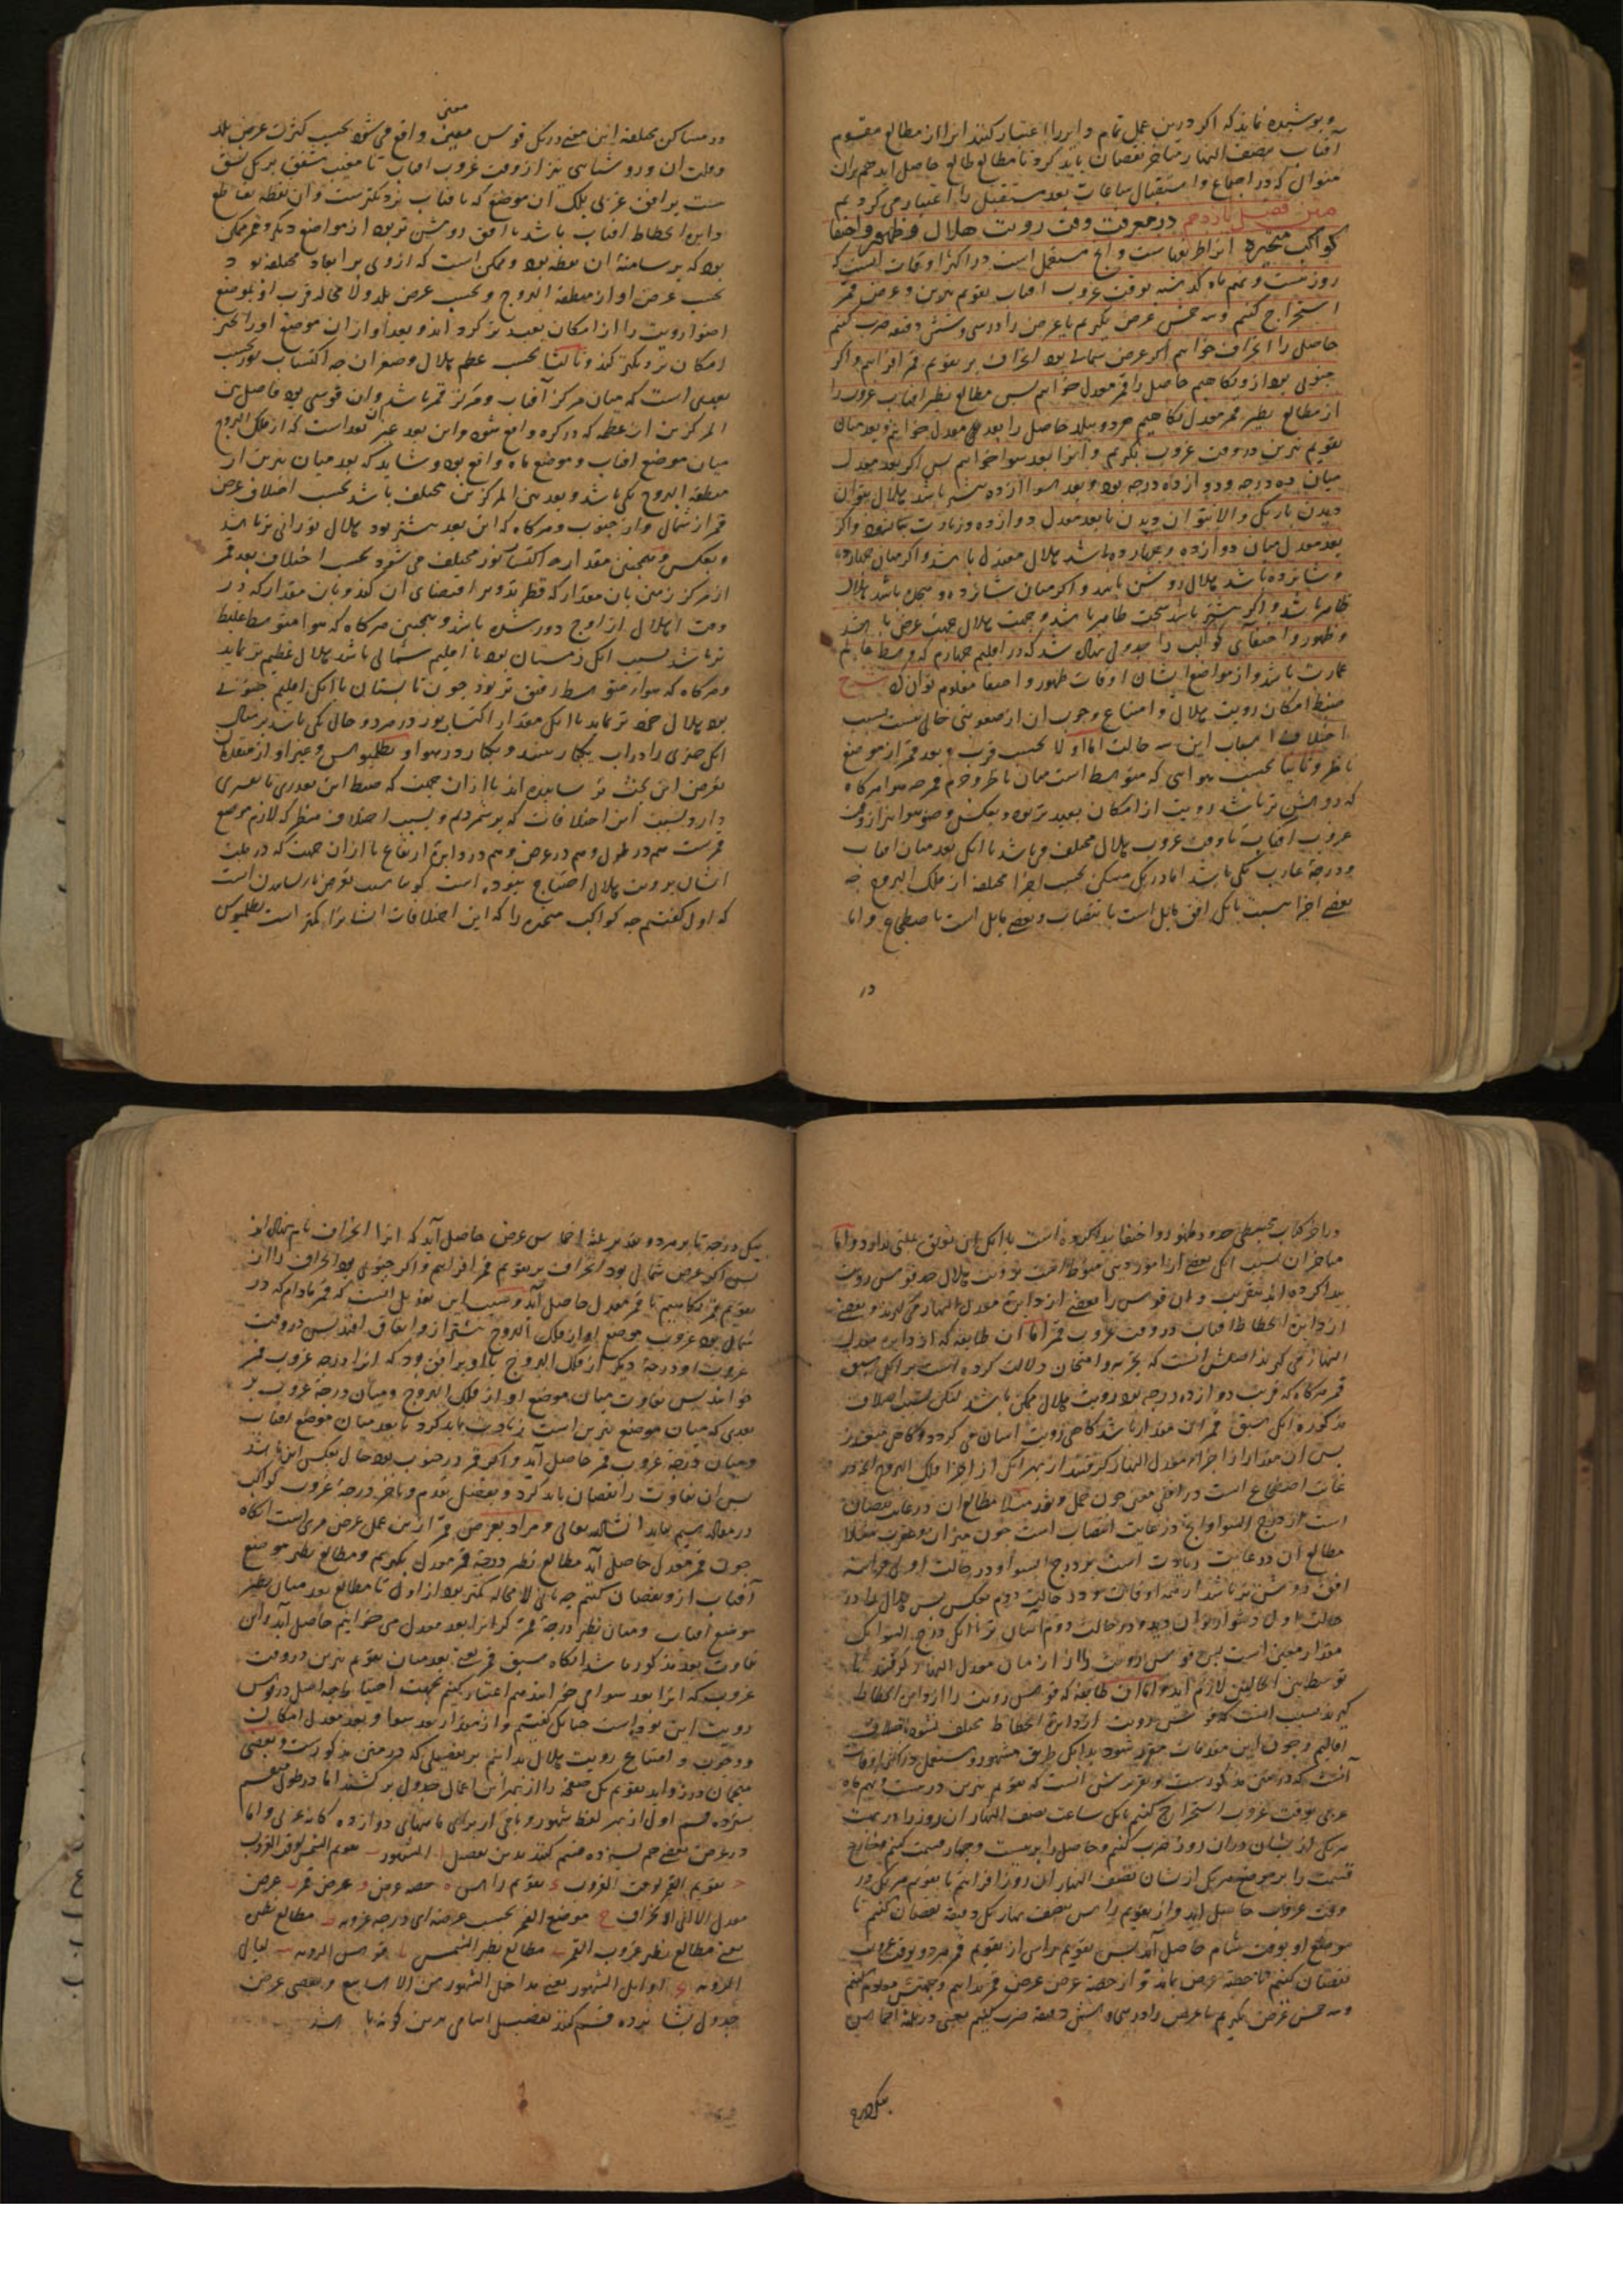 و پوشیده نماند که اگر درین عمل تمام دایر را اعتبار کنند انرا از مطالع مقوم
آفتاب بنصف النهار متاخر نقصان باید کرد تا مطالع طالع حاصل اید هم بران
منوال که در اجتماع و استقبال ساعات بعد مستقبل را اعتبار می کردیم
متن فصل یازدهم در معرفت وقت رویت هلال و ظهور و اختفا
کواکب متحیره
روز بیست و نهم ماه گذشته بوقت غروب افتاب تقویم نیرین و عرض قمر
استخراج کنیم و سه خمس عرض بگیریم یا عرض را در سی و شش دقیقه ضرب کنیم
حاصل را انحراف خوانیم اگر عرض شمالی بود انحراف بر تقویم قمر افزاییم و اگر
جنوبی بود ازو بکاهیم حاصل را قمر معدل خوانیم پس مطالع نظیر افتاب غروب را
از مطالع نظیر قمر معدل بکاهیم حاصل را بعد معدل خوانیم و بعد میان
تقویم نیرین در وقت غروب بگیریم و انرا بعد سوا خوانیم پس اگر بعد معدل
میان ده درجه و دوازده درجه بود و بعد سوا از ده بیشتر باشد هلال بتوان
دیدن باریک و الا نتوان دیدن تا بعد معدل دوازده و زیادت
بعد معدل میان دوازده و چهارده باشد هلال معتدل باشد و اگر میان چهارده
و شانزده باشد هلال روشن باشد و اگر میان شانزده و هجده باشد هلال
ظاهر باشد و اگر بیشتر باشد سخت ظاهر باشد و جهت هلال جهت عرض باشد
و ظهور و اختفای کواکب را جدولی نهاده شد که در اقلیم چهارم که وسط عالم
عمارت باشد و از مواضع ایشان اوقات ظهور و اختفا معلوم توان کرد شرح
ضبط امکان رویت هلال و امتناع و وجوب ان از صعوبتی خالی نیست بسبب
اختلاف اسباب این سه حالت اما اولا بحسب قرب و بعد قمر از موضع
ناظر و ثانیا بحسب هوایی که متوسط است میان ناظر و جرم قمر چه هوا هرگاه
که روشن تر باشد رویت از امکان بعید تر بود و بعکس وضوء هوا نیز از وقت
غروب آفتاب تا وقت غروب هلال مختلف می باشد با انکه بعد میان افتاب
و درجه غارب یکی باشد اما در یک مسکن بحسب اجزا مختلفه از فلک البروج چه
بعضی اجزا نسبت با یک افق مایل است بانتصاب و بعضی مایل است باضطجاع و اما
در
معنی
در مساکن مختلفه این معنی در یک قوس معین واقع می شود بحسب کثرت عرض بلد
و قلت ان و روشنایی نیز از وقت غروب افتاب تا مغیب شفق بر یک نسق
نیست بر افق غربی بلک آن موضع که بافتاب نزدیکترست وان نقطه تقاطع
دایره انحطاط افتاب باشد با افق روشن تر بود از مواضع دیگر و قمر ممکن
بود که بر سامته ان نقطه بود و ممکن است که از وی بر ابعاد مختلفه بود
بحسب عرض او از منطقة البروج و بحسب عرض بلد و لا محاله قرب او بموضع
اضوا رویت را از امکان بعید تر گرداند و بعد او از ان موضع اورا بحیز
امکان نزدیکتر کند و ثالثا بحسب عظم هلال و صغر ان چه اکتساب نور بحسب
بعدی است که میان مرکز آفتاب و مرکز قمر باشد و ان قوسی بود فاصل بین
المرکزین از عظیمه که در کره واقع شود و این بعد غیر ان بعد است که از فلک البروج
میان موضع افتاب و موضع ماه واقع بود و شاید که بعد میان نیرین از
منطقة البروج یکی باشد و بعد بین المرکزین مختلف باشد بحسب اختلاف عرض
قمر از شمال و از جنوب و هرگاه که این بعد بیشتر بود هلال نورانی تر باشد
و بعکس و همچنین مقدار اکتساب نور مختلف می شود بحسب اختلاف بعد قمر
از مرکز زمین بان مقدار که قطر تدویر اقتضای ان کند و بان مقدار که در
وقت اهلال از اوج دور شده باشد و همچنین هرگاه که هوا متوسط غلیظ
تر باشد بسبب انک زمستان بود یا اقلیم شمالی باشد هلال عظیم تر نماید
و هرگاه که هوا متوسط رقیق تر بود چون تابستان یا انک اقلیم جنوبی
بود هلال خرد تر نماید با انک مقدار اکتساب نور در هر دو حال یکی باشد بر مثال
انک چیزی را در اب یکبار بینند و یکبار در هوا و بطلمیوس و غیر او از متقدمان
تعرض این بحث نرسانیده اند یا از ان جهت که ضبط این تعذری یا تعسری
دارد بسبب این اختلافات که برشمردیم و بسبب اختلاف منظر که لازم موضع
قمرست هم در طول و هم در عرض و هم در دایره ارتفاع یا از ان جهت که در ملت
ایشان برویت هلال احتیاج نبوده است
که اول گفتیم چه کواکب متحیره را که این اختلافات ایشانرا کمتر است بطلمیوس
در اخر کتاب مجسطی حدود ظهور و اختفا پیدا کرده است با انک این علتی ندارد و اما
متاخران بسبب انک بعضی از امور دینی منوط است برویت هلال حد قوس رویت
پیدا کرده اند بتقریب و ان قوس را بعضی از دایره معدل النهار می گیرند و بعضی
از دایره انحطاط افتاب در وقت غروب قمر اما ان طایفه که از دایره معدل
النهار می گیرند اصلش انست که تجربه و امتحان دلالت کرده است بر انک سبق
قمر هرگاه که قریب دوازده درجه بود رویت هلال ممکن باشد لیکن بسبب اختلاف
مذکوره انک سبق قمر این مقدار باشد گاهی رویت اسان می گردد و گاهی متعذر
پس ان مقدار از اجزا معدل النهار گرفتند از بهر انک از اجزا فلک البروج انچه در
غایت اضطجاع است در افقی معین چون حمل و ثور مثلا مطالع ان در غایت نقصان
است از درج السوا و انچه در غایت انتصاب است چون میزان و عقرب مثلا
مطالع ان در غایت زیادت است بر درج السوا و در حالت اولی
افق روشن تر باشد از همه اوقات و در حالت دوم بعکس پس هلال را در
حالت اول دشوار توان دید و در حالت دوم اسان تر با انک درج السوا یک
مقدار معین است پس قوس رویت را از ازمان معدل النهار گرفتند تا
توسط بین الحالتین لازم اید و اما ان طایفه که قوس رویت را از دایره انحطاط
گیرند بسبب انست که قوس رویت از دایره انحطاط مختلف نشود باختلاف
اقالیم و چون این مقدمات مقرر شود بدانک طریق مشهور و مستعمل در اکثر اوقات
آنست که در متن مذکورست و تقریرش انست که تقویم نیرین در بیست و نهم ماه
عربی بوقت غروب استخراج کنیم بانک ساعت نصف النهار ان روز را در بهت
هریک از یشان دران روز ضرب کنیم و حاصل را بر بیست و چهار قسمت کنیم و خارج
قسمت را بر موضع هریک از یشان بنصف النهار ان روز افزاییم تا تقویم هریک در
وقت غروب حاصل اید و از تقویم راس نصف بهار یک دقیقه نقصان کنیم تا
موضع او بوقت شام حاصل آید پس تقویم راس از تقویم قمر هر دو بوقت غروب
نقصان کنیم تا حصه عرض بماند و از حصه عرض عرض قمر بدانیم و جهتش معلوم کنیم
و سه خمس عرض بگیریم یا عرض را در سی و شش دقیقه ضرب کنیم یعنی در ثلثة اخماس
یک درجه تا بر هر دو تقدیر ثلثة اخماس عرض حاصل آید که انرا انحراف نام نهاده اند
پس اگر عرض شمالی بود انحراف بر تقویم قمر افزاییم و اگر جنوبی بود انحراف را از
تقویم قمر بکاهیم تا قمر معدل حاصل آید و سبب این تعدیل انست که قمر مادام که در
شمال بود غروب موضع او از فلک البروج پیشتر از و اتفاق افتد پس در وقت
غروب او درجه دیگر از فلک البروج با او بر افق بود که انرا درجه غروب قمر
خوانند پس تفاوت میان موضع او از فلک البروج و میان درجه غروب بر
بعدی که میان موضع نیرین است زیادت باید کرد تا بعد میان موضع افتاب
و میان درجه غروب قمر حاصل آید و اگر قمر در جنوب بود حال بعکس این باشد
پس ان تفاوت را نقصان باید کرد و تفصیل تقدم و تاخر درجه غروب کواکب
در مقاله سیم بیاید انشا الله تعالی و مراد بعرض قمر ازین عمل عرض مرئی است انگاه
چون قمر معدل حاصل آید مطالع نظیر درجه قمر معدل بگیریم و مطالع نظیر موضع
آفتاب ازو نقصان کنیم چه ثانی لا محاله کمتر بود از اول تا مطالع بعد میان نظیر
موضع افتاب و میان نظیر درجه قمر که انرا بعد معدل می خوانیم حاصل آید و این
تفاوت بعد مذکور باشد انگاه سبق قمر یعنی بعد میان تقویم نیرین در وقت
غروب که انرا بعد سوا می خوانند هم اعتبار کنیم بجهت احتیاط چه اصل در قوس
رویت این بوده است چنانک گفتیم و از مقدار بعد سوا و بعد معدل امکان
و وجوب و امتناع رویت هلال بدانیم بر تفصیلی که در متن مذکورست و بعضی
منجمان در زواید تقویم یک صفحه را از بهر این اعمال جدول برکشند اما در طول منقسم
بسیزده قسم اول از بهر لفظ شهور و باقی از برای نامهای دوازده گانه عربی و اما
در عرض بعضی هم بسیزده قسم کنند بدین تفصیل ا الشهور ب تقویم الشمس لوقت الغروب
ج تقویم القمر لوقت الغروب د تقویم راس ه حصه عرض و عرض قمر ز عرض
معدل الانحراف ح موضع القمر بحسب عرضه ای درجه غروبه ط مطالع نظیر
یعنی مطالع نظیر غروب القمر ی مطالع نظیر الشمس یا قوس الرویه یب لیالی
الرویه یج اوایل الشهور یعنی مداخل الشهور من الاسابیع و بعضی عرض
جدول بشانزده قسم کنند تفصیل اسامی بدین گونه باشد